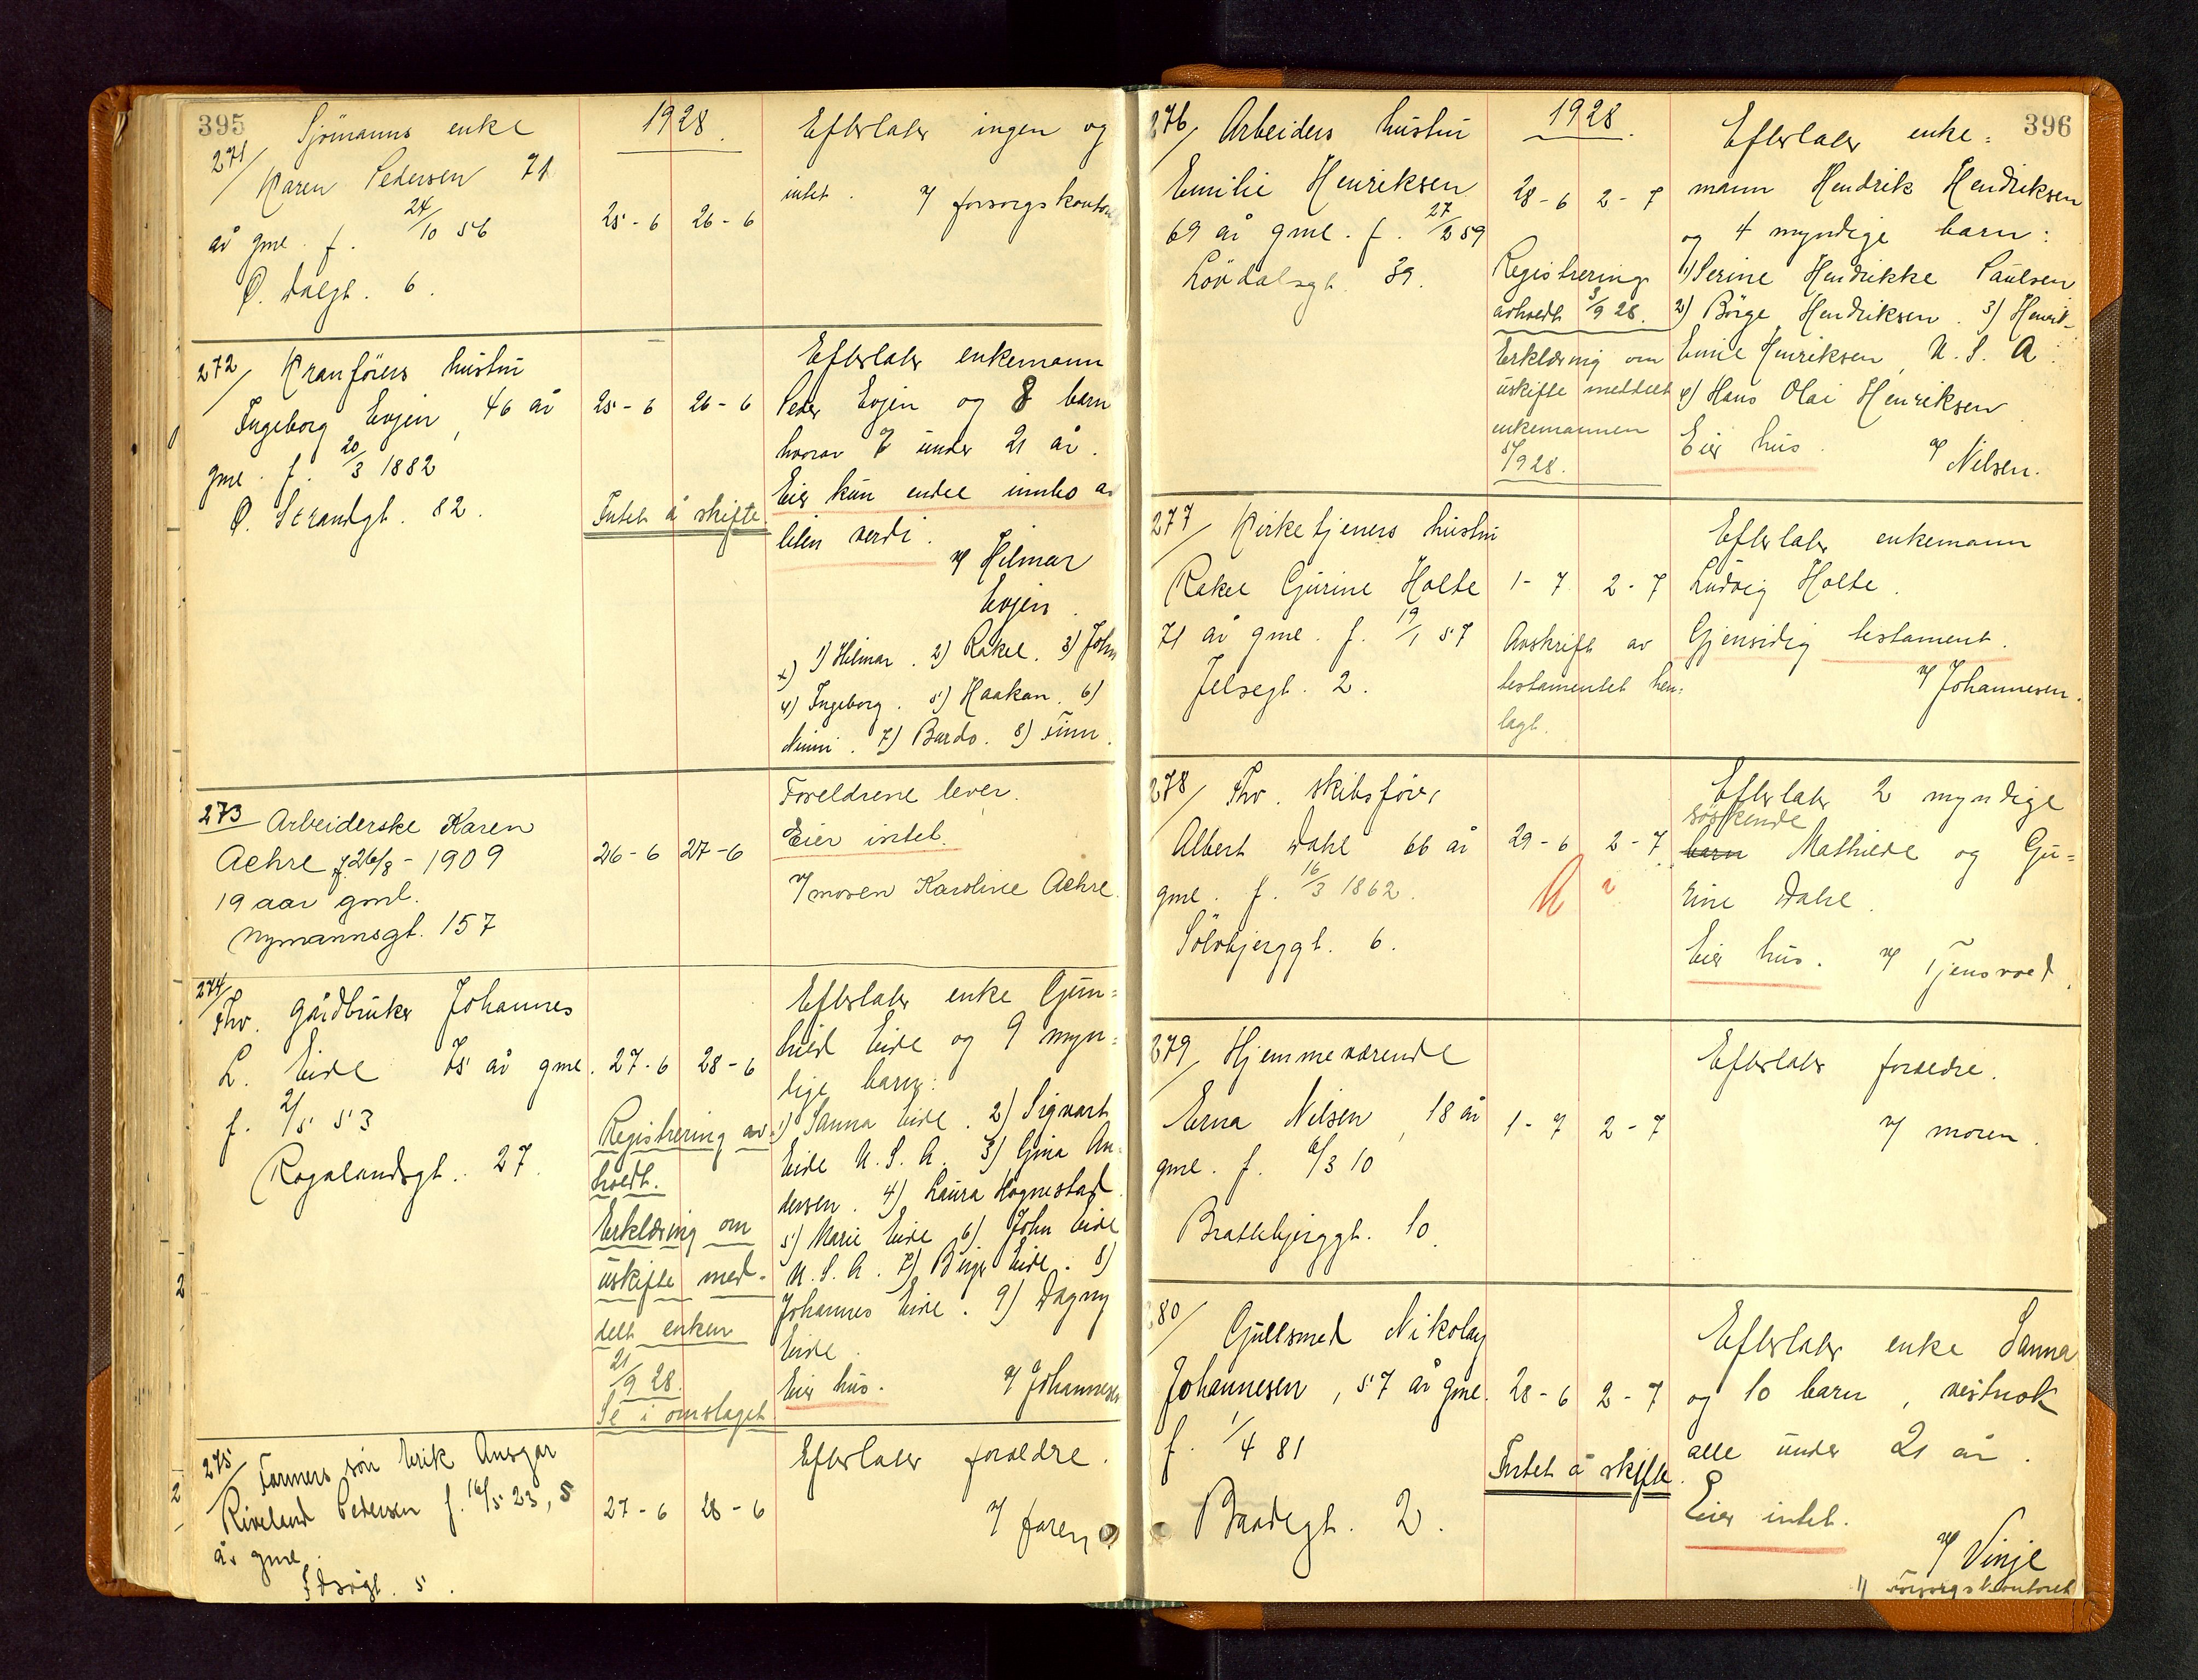 395
1928
271/ Sjömanns enke
Karen Pedersen 71
år gml. f. 24/10 56
Ø. Dalgt. 6.
25-6 26-6
Efterlater ingen og
intet. v/ forsorgskontor
272/ Kranförers hustru
Ingeborg Evjen, 46 år
gml. f. 20/3 1882
Ø. Strandgt. 82.
25-6 26-6
Intet å skifte.
Efterlater enkemann
Peder Evjen og 8 barn
hvorav 7 under 21 år.
Eier kun endel innbo av
liten verdi.
v/ Hilmar
Evjen.
x) 1) Hilmar. 2) Rakel. 3) John
4) Ingeborg. 5) Haakon. 6)
Ninni. 7) Bardo. 8) Finn.
273 Arbeiderske Karen
Aehre f. 26/8-1909
19 aar gml.
Nymannsgt. 157
26-6 27-6
Foreldrene lever.
Eier intet.
v/ moren Karoline Aehre.
274/
Fhv. gårdbruker Johannes
L. Eide 75 år gml.
f. 2/5 53
Rogalandsgt. 27.
27-6 28-6
Registrering av-
holdt.
Erklæring om
uskifte med-
delt enken
21/9 28.
Se i omslaget
Efterlater enke Gun=
hild Eide og 9 myn=
dige barn:
1) Sanna Eide. 2) Sigvart
Eide U.S.A. 3) Gina An-
dersen. 4) Laura Hognestad.
5) Marie Eide 6) John Eide
U.S.A. 7) Birger Eide. 8)
Johannes Eide. 9) Dagny
Eide.
Eier hus. v/ Johannesen
275/ Farmers sön Erik Ansgar
Riveland Pedersen f. 16/5 23, 5
år gml.
5.
27-6 28-6
Efterlater foreldre.
v/ faren
396
1928.
276/ Arbeiders hustru
Emilie Henriksen
69 år gml. f. 27/2 59
Lövdalsgt. 39.
28-6 2-7
Registrering
avholdt 3/9 28.
Erklæring om
uskifte meddelt
enkemannen
5/9 28.
Efterlater enke=
mann Hendrik Hendriksen
og 4 myndige barn:
1) Serine Hendrikke Paulsen
2) Börge Hendriksen. 3) Henrik
Emil Henriksen, U.S.A.
4) Hans Olai Henriksen
Eier hus. v/ Nilsen.
277/ Kirketjeners hustru
Rakel Gurine Holte
71 år gml. f. 19/1 57
Jelsegt. 2.
1-7 2-7
Avskrift av
testamentet hen=
lagt.
Efterlater enkemann
Ludvig Holte.
Gjensidig testament.
v/ Johannesen.
278/ Fhv. skibsförer
Albert Dahl 66 år
gml. f. 16/3 1862.
Sölvbjerggt. 6.
29-6 2-7
Efterlater 2 myndige
söskende
barn Mathilde og Gu=
rine Dahl.
Eier hus. v/ Tjensvoed.
279/ Hjemmeværende
Erna Nilsen, 18 år
gml. f. 6/3 10
Brattebjerggt. 10.
1-7 2-7
Efterlater foreldre.
v/ moren.
280/ Gullsmed Nikolay
Johannesen, 57 år gml.
f. 1/4 81
Baadegt. 2.
28-6 2-7
Intet å skifte.
Efterlater enke Sanna
og 10 barn, vistnok
alle under 21 år.
Eier intet.
v/ Vinje
1) Forsorgskontoret